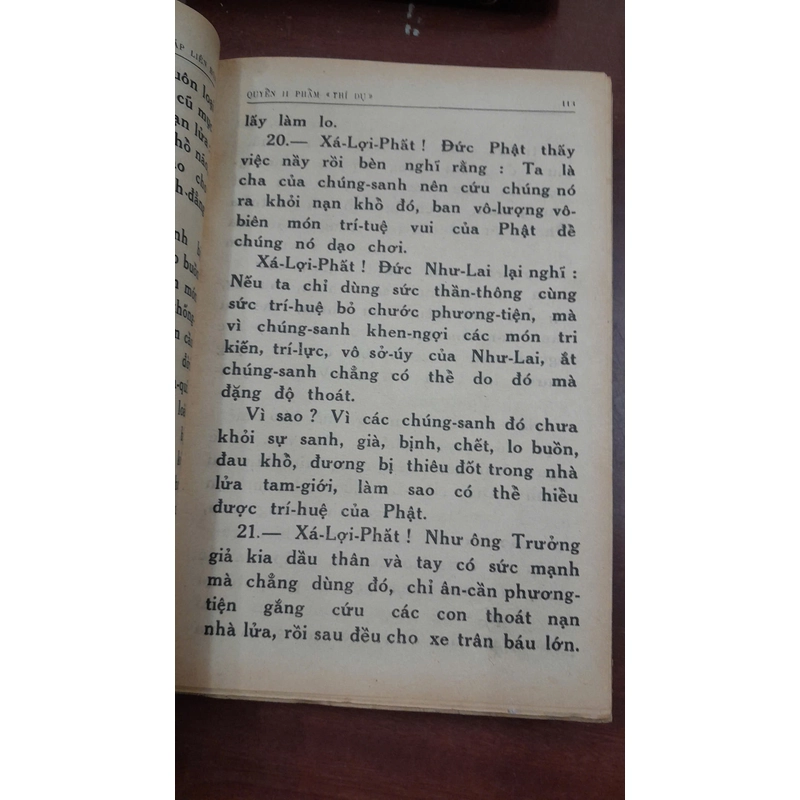 ÁP LIÊN
uôn loại
cũ mục
lửa.
khổ não
cho
nh-đẳng
buồn
món
QUYỂN II PHẨM «THÍ DỤ» 111
lấy làm lo.
20.— Xá-Lợi-Phất ! Đức Phật thấy
việc nầy rồi bèn nghĩ rằng : Ta là
cha của chúng-sanh nên cứu chúng nó
ra khỏi nạn khổ đó, ban vô-lượng vô-
biên món trí-tuệ vui của Phật để
chúng nó dạo chơi.
Xá-Lợi-Phất ! Đức Như-Lai lại nghĩ :
Nếu ta chỉ dùng sức thần-thông cùng
sức trí-huệ bỏ chước phương-tiện, mà
vì chúng-sanh khen-ngợi các món tri
kiến, trí-lực, vô sở-úy của Như-Lai, ắt
chúng-sanh chẳng có thể do đó mà
đặng độ thoát.
Vì sao ? Vì các chúng-sanh đó chưa
khỏi sự sanh, già, bịnh, chết, lo buồn,
đau khổ, đương bị thiêu đốt trong nhà
lửa tam-giới, làm sao có thể hiểu
được trí-huệ của Phật.
21.— Xá-Lợi-Phất ! Như ông Trưởng
giả kia dầu thân và tay có sức mạnh
mà chẳng dùng đó, chỉ ân-cần phương-
tiện gắng cứu các con thoát nạn
nhà lửa, rồi sau đều cho xe trân báu lớn.